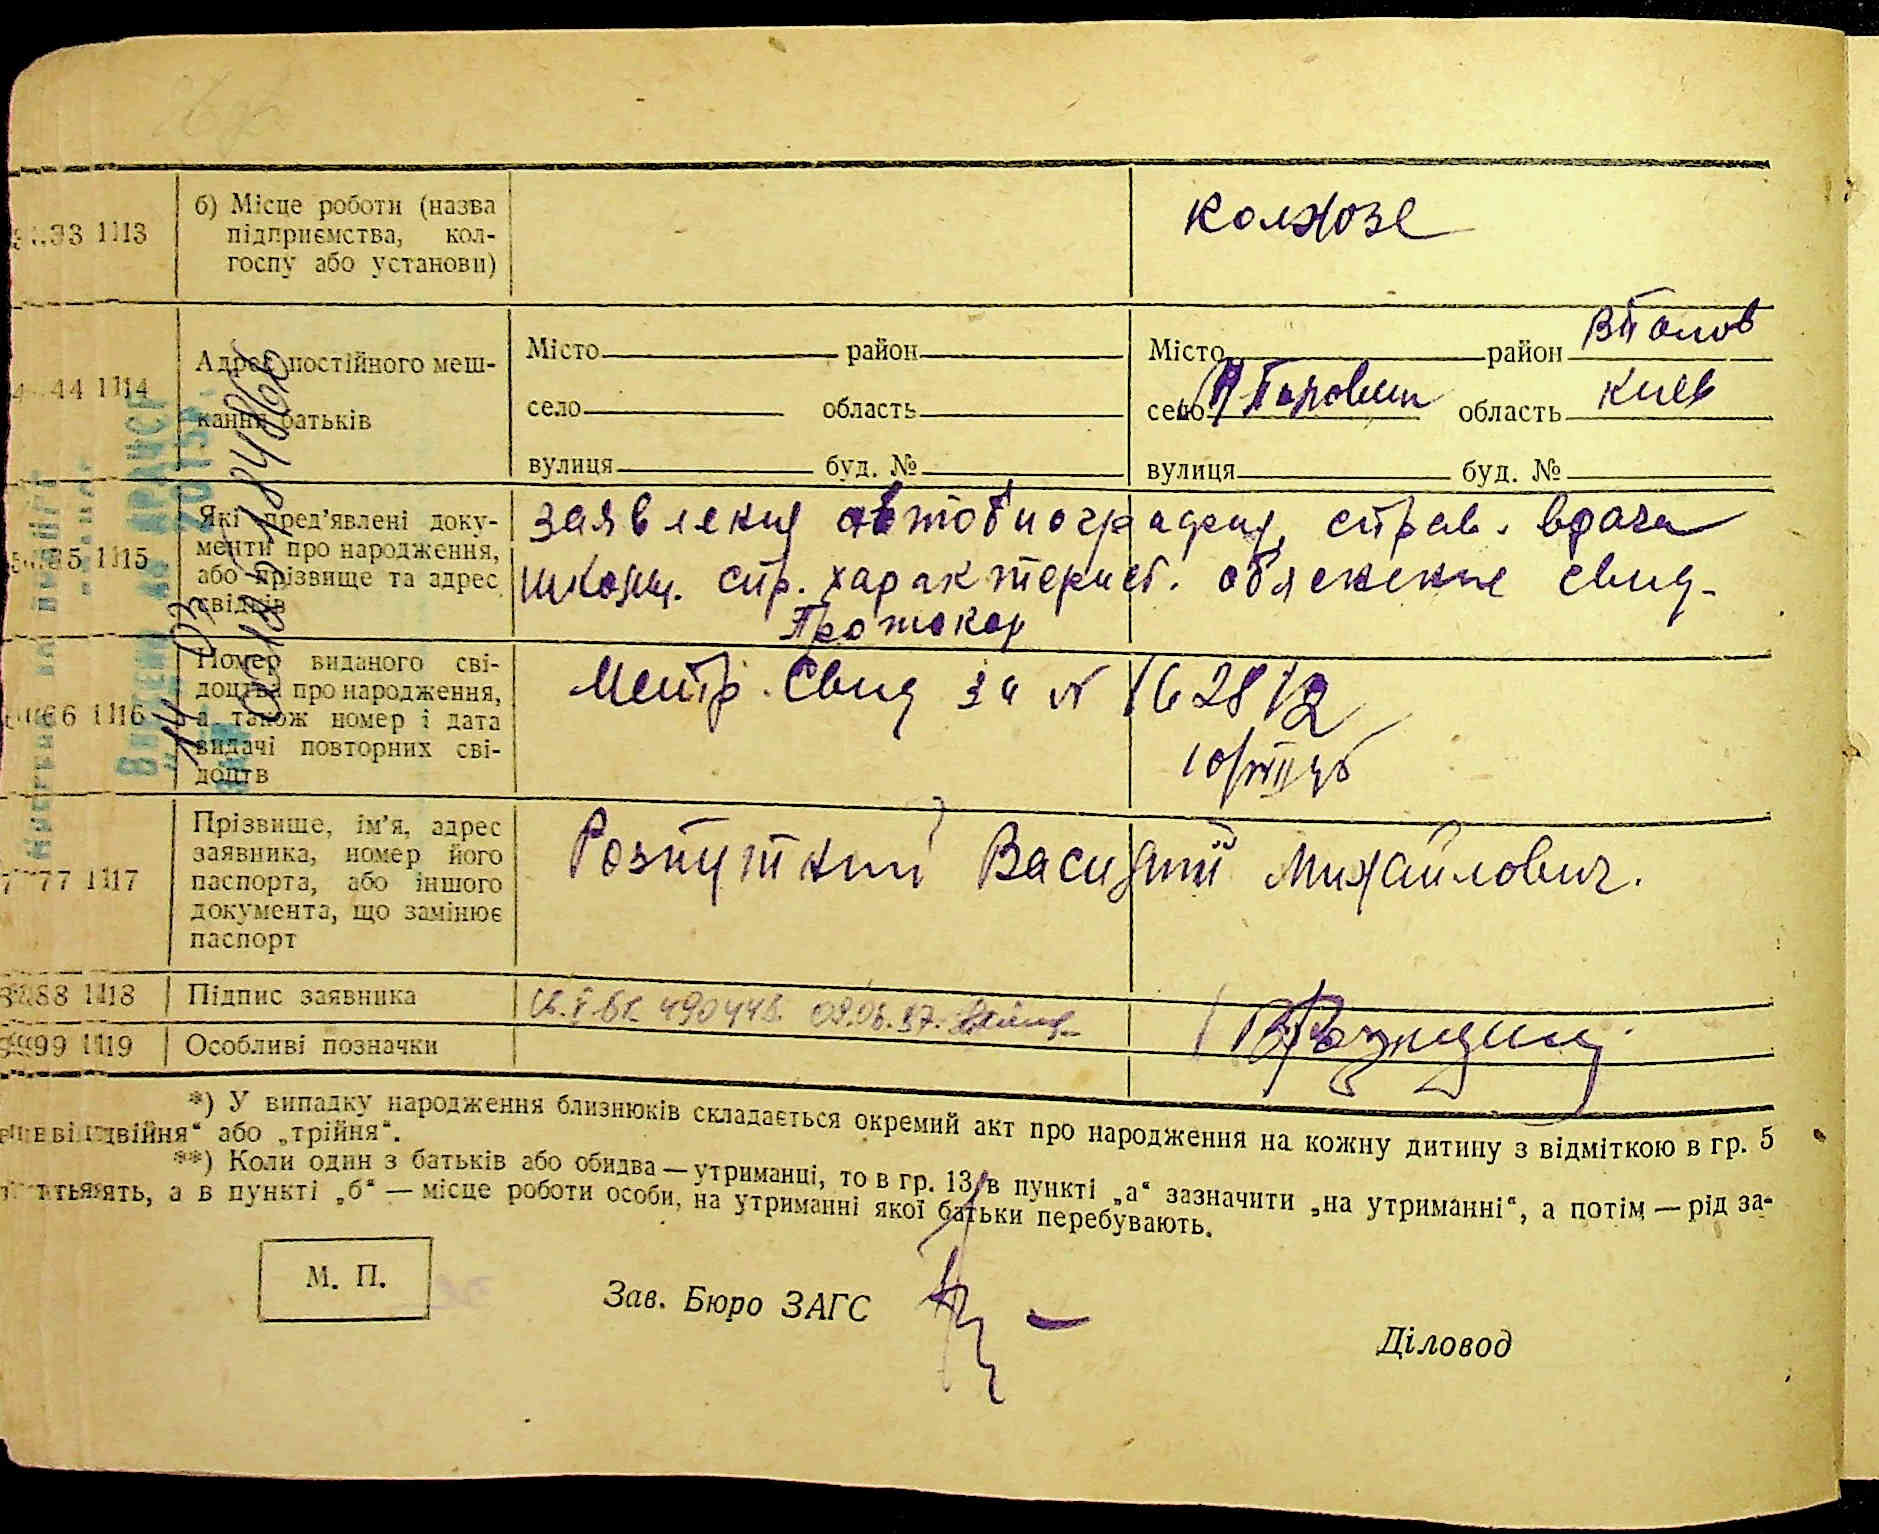 13
б) Місце роботи (назва
підприємства, кол-
госпу або установи)
колхозе
14
Адрес постійного меш-
кання батьків
Місто район
село область
вулиця буд. №
Місто район
село область Киев
вулиця буд. №
15
Які пред’явлені доку-
менти про народження,
або прізвище та адрес
свідків
заявления автобиография, справ. врача
школы. спр. характерист. обяснение свид-
Протокол
16
Номер виданого сві-
доцтва про народження,
а також номер і дата
видачі повторних сві-
доцтв
Метр. Свид за №
17
Прізвище, ім’я, адрес
заявника, номер його
паспорта, або іншого
документа, що замінює
паспорт
Розпутний Василий Михайлович.
18
Підпис заявника
490448. 09.06.
19
Особливі позначки
*) У випадку народження близнюків складається окремий акт про народження на кожну дитину з відміткою в гр. 5
двійня“ або „трійня“.
**) Коли один з батьків або обидва — утриманці, то в гр. 13, в пункті „а“ зазначити „на утриманні“, а потім — рід за-
нять, а в пункті „б“ — місце роботи особи, на утриманні якої батьки перебувають.
М. П.
Зав. Бюро ЗАГС
Діловод